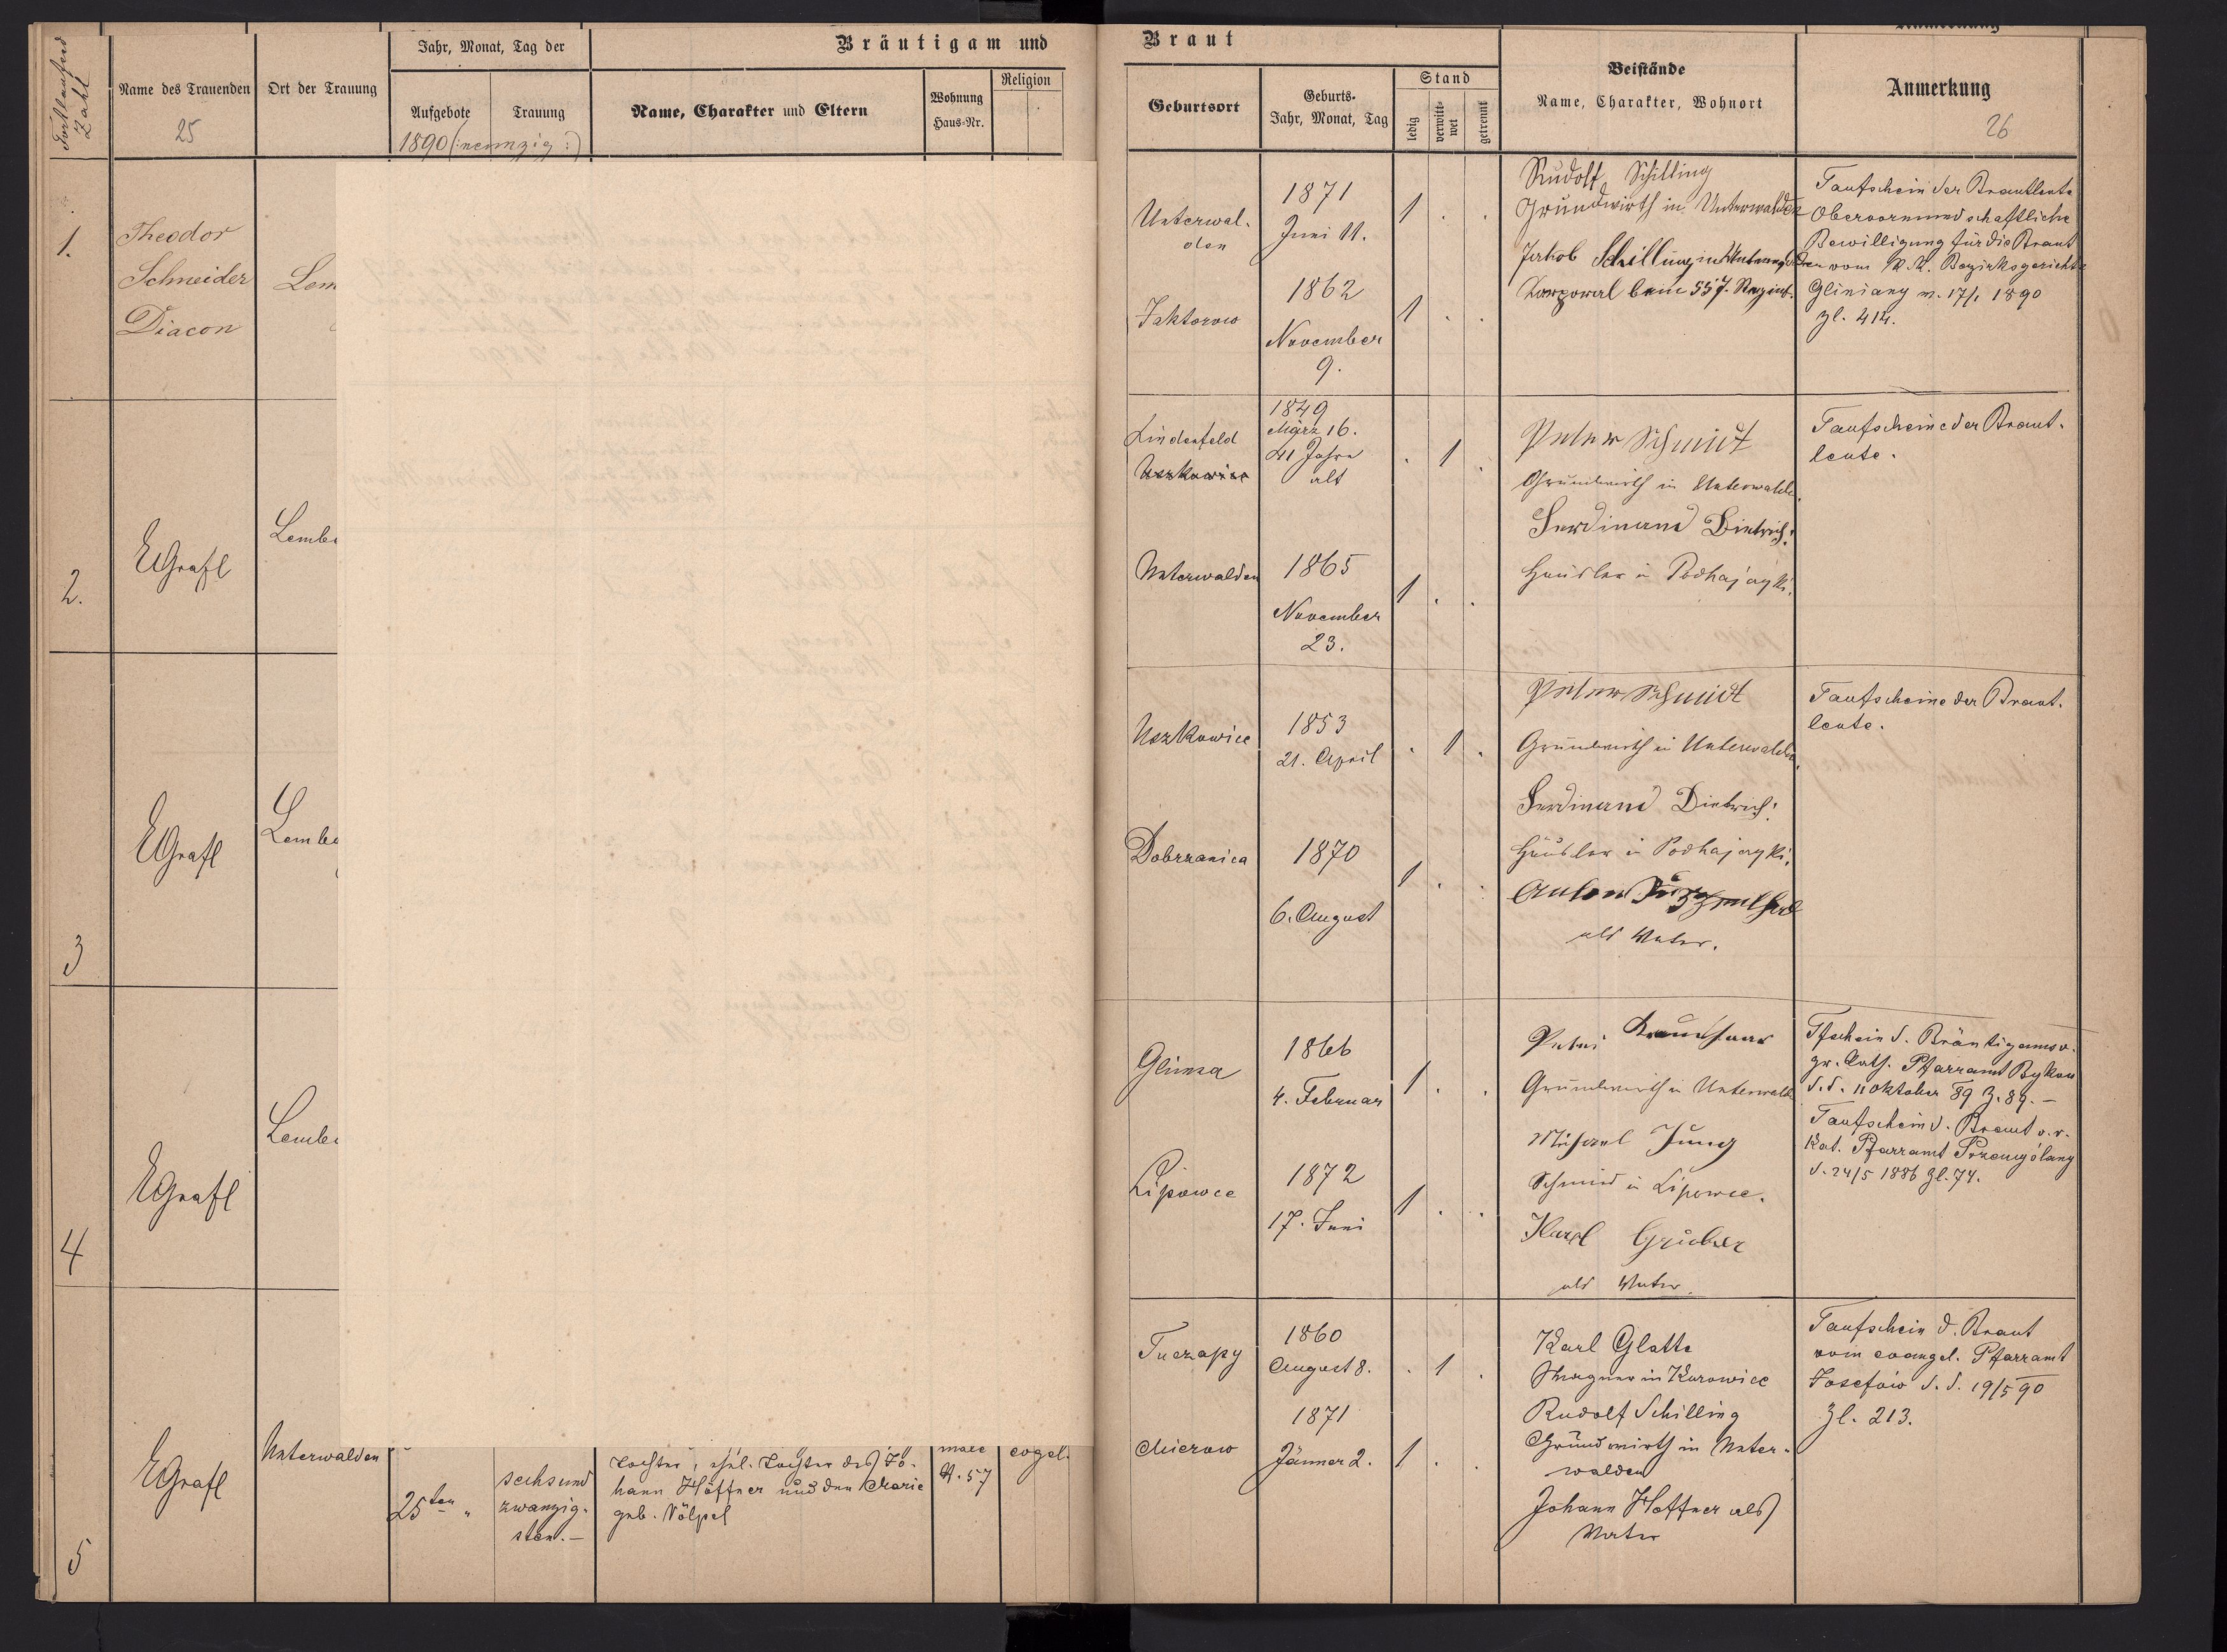 Fortlaufend
Zahl
Name des Trauenden
25
Ort der Trauung
Jahr, Monat, Tag der
Aufgebote
Trauung
1890 (:neunzig:)
Bräutigam und
Name, Charakter und Eltern
Wohnung
Haus-Nr.
Religion
Braut
Geburtsort
Geburts-
Jahr, Monat, Tag
Stand
ledig
verwitt-
wet
getrennt
Beistände
Name, Charakter, Wohnort
Anmerkung
26
1.
Theodor
Schneider
Diacon
Lem
Unterwal-
den
1871
Juni 11.
1 . .
Jaktorow
1862
November
9.
1 . .
Rudolf Schilling
Grundwirth in Unterwalden
Jakob Schilling in
Korporal beim 55 Regimt.
Taufschein der Brautleute
Obervormundschaftliche
Bewilligung für die Braut
vom K. K. Bezirksgerichte
Gliniany v. 17/1 1890
Zl. 414.
2.
EGrafl
Lembe
Lindenfeld
Uszkowice
1849
März 16.
41 Jahre
alt
. 1 .
Unterwalden
1865
November
23.
1 . .
Peter Schmidt
Grundwirth in Unterwalden
Ferdinand Dietrich:
Häusler in Podhajczyki.
Taufscheine der Braut-
leute.
3
EGrafl
Lembe
Uszkowice
1853
21. April
. 1 .
Dobrzanica
1870
6. August
1 . .
Peter Schmidt
Grundwirth in Unterwalden
Ferdinand Dietrich:
Häusler in Podhajczyki.
Anton
als Vater.
Taufscheine der Braut-
leute.
4
EGrafl
Lembe
Glinna
1866
4. Februar
1 . .
Lipowce
1872
17. Juni
1 . .
Peter
Grundwirth in Unterwalden
Michael Jung
Schmied in Lipowce.
Karl Gruber
als Vater.
Tfschein d. Bräutigams v.
gr. Kath. Pfarramt Bykow
d. d. 11 Oktober 89 Z. 89. —
Taufschein d. Braut v. r.
Kat. Pfarramt Przemyślany
d. 24/5 1886 Zl. 74.
5
EGrafl
Unterwalden
25ten "
sechsund
zwanzig-
sten. —
Tochter, ehel. Tochter des Jo-
hann Höffner und der Marie
geb. Völpel
N. 57
evgel.
Tuczapy
1860
August 8.
. 1 .
Mierow
1871
Jänner 2.
1 . .
Karl Glatte
Wagner in Kurowice
Rudolf Schilling
Grundwirth in Unter-
walden
Johann Hoffner als
Vater
Taufschein d. Braut
vom evangel. Pfarramt
Josefow d. d. 19/5 90
Zl. 213.